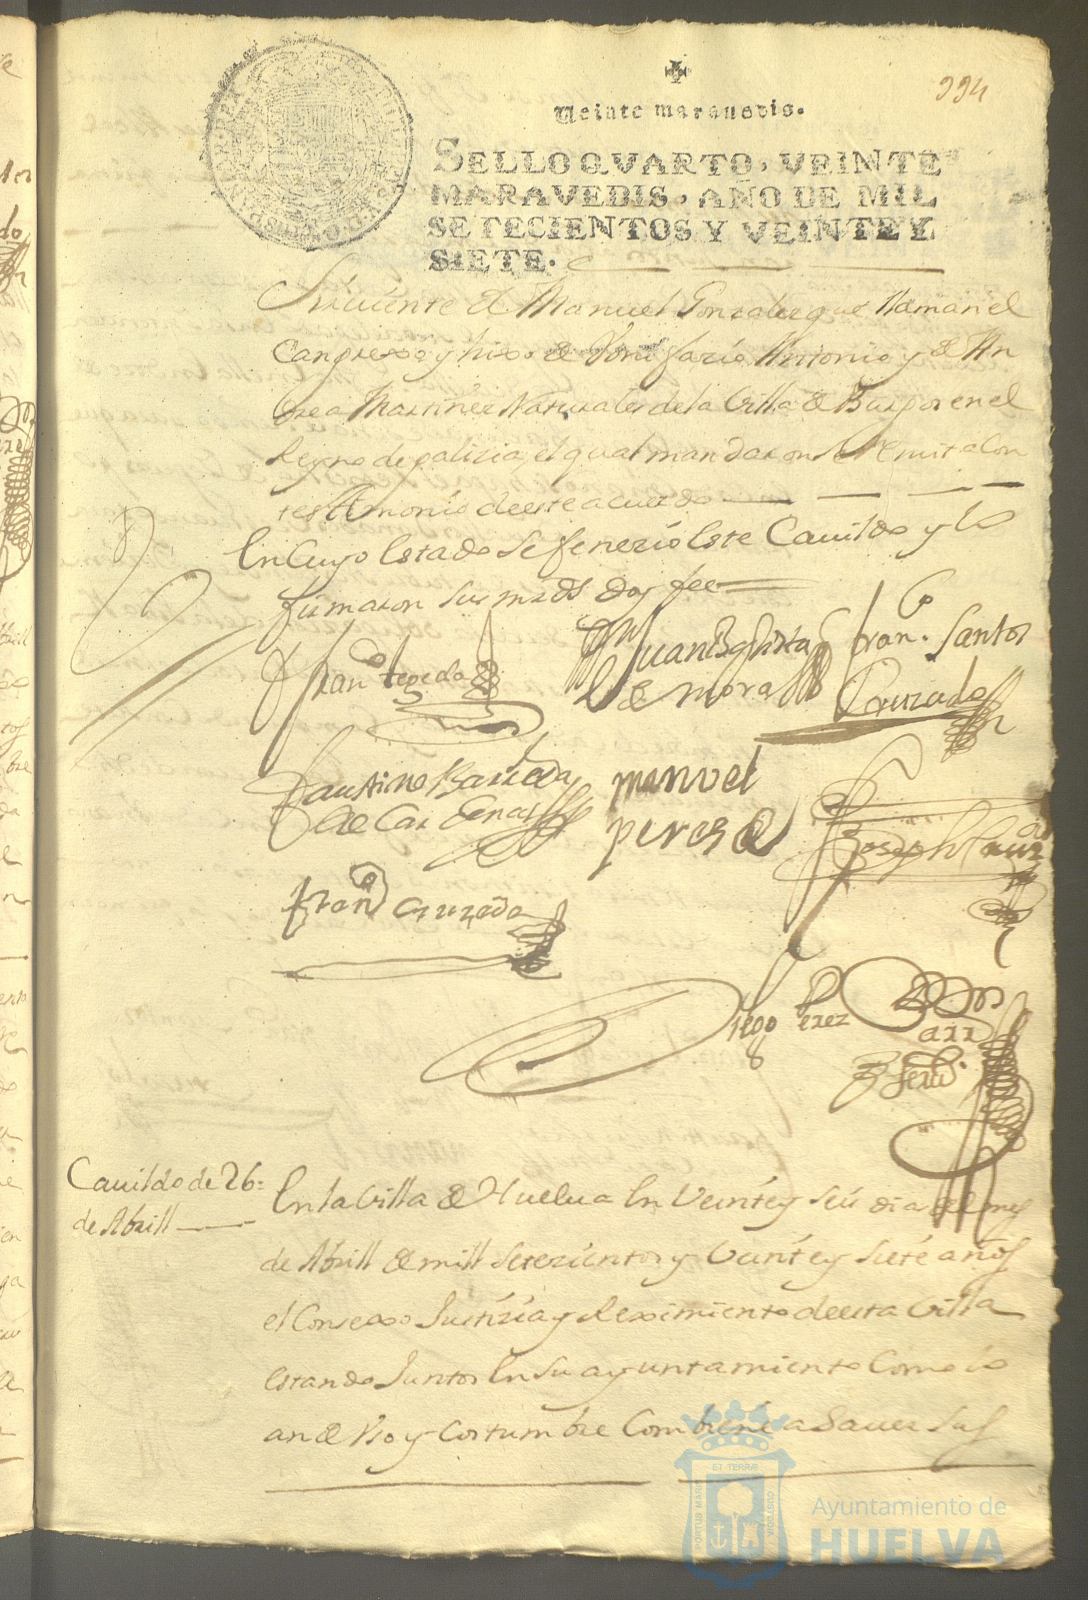 334
Veinte maravedis.
SELLO QVARTO, VEINTE
MARAVEDIS, AÑO DE MIL
SETECIENTOS Y VEINTE Y
SIETE.
Sirviente de Manuel Gonzalez que llaman el
Cangrexo y hixo de Bonifazio Antonio y de An
drea Martinez Naturales de la Villa de Burgos en el
Reyno de galizia, el qual mandaron se remita con
testimonio deeste acuerdo
En Cuyo Estado se fenezio Este Cavildo y lo
firmaron sus mrds doy fee
Fran.co tegeda
Juan Baptista
de mora
Fran.co Santos
Cruzado
Faustino Barreda
de Cardenas
manuel
peres
Joseph
Fran.co Cruzado
Diego Perez
Cavildo de 26
de Abrill
En la Villa de Huelva En Veinte y seis dias del mes
de Abrill de mill setezientos y Veinte y siete años
el Consexo Justizia y Reximiento deesta Villa
estando Juntos En su ayuntamiento Como lo
an de Vso y Costumbre Combiene a Saver sus
PORTUS MARIS ET TERRÆ CUSTODIA
Ayuntamiento de
HUELVA